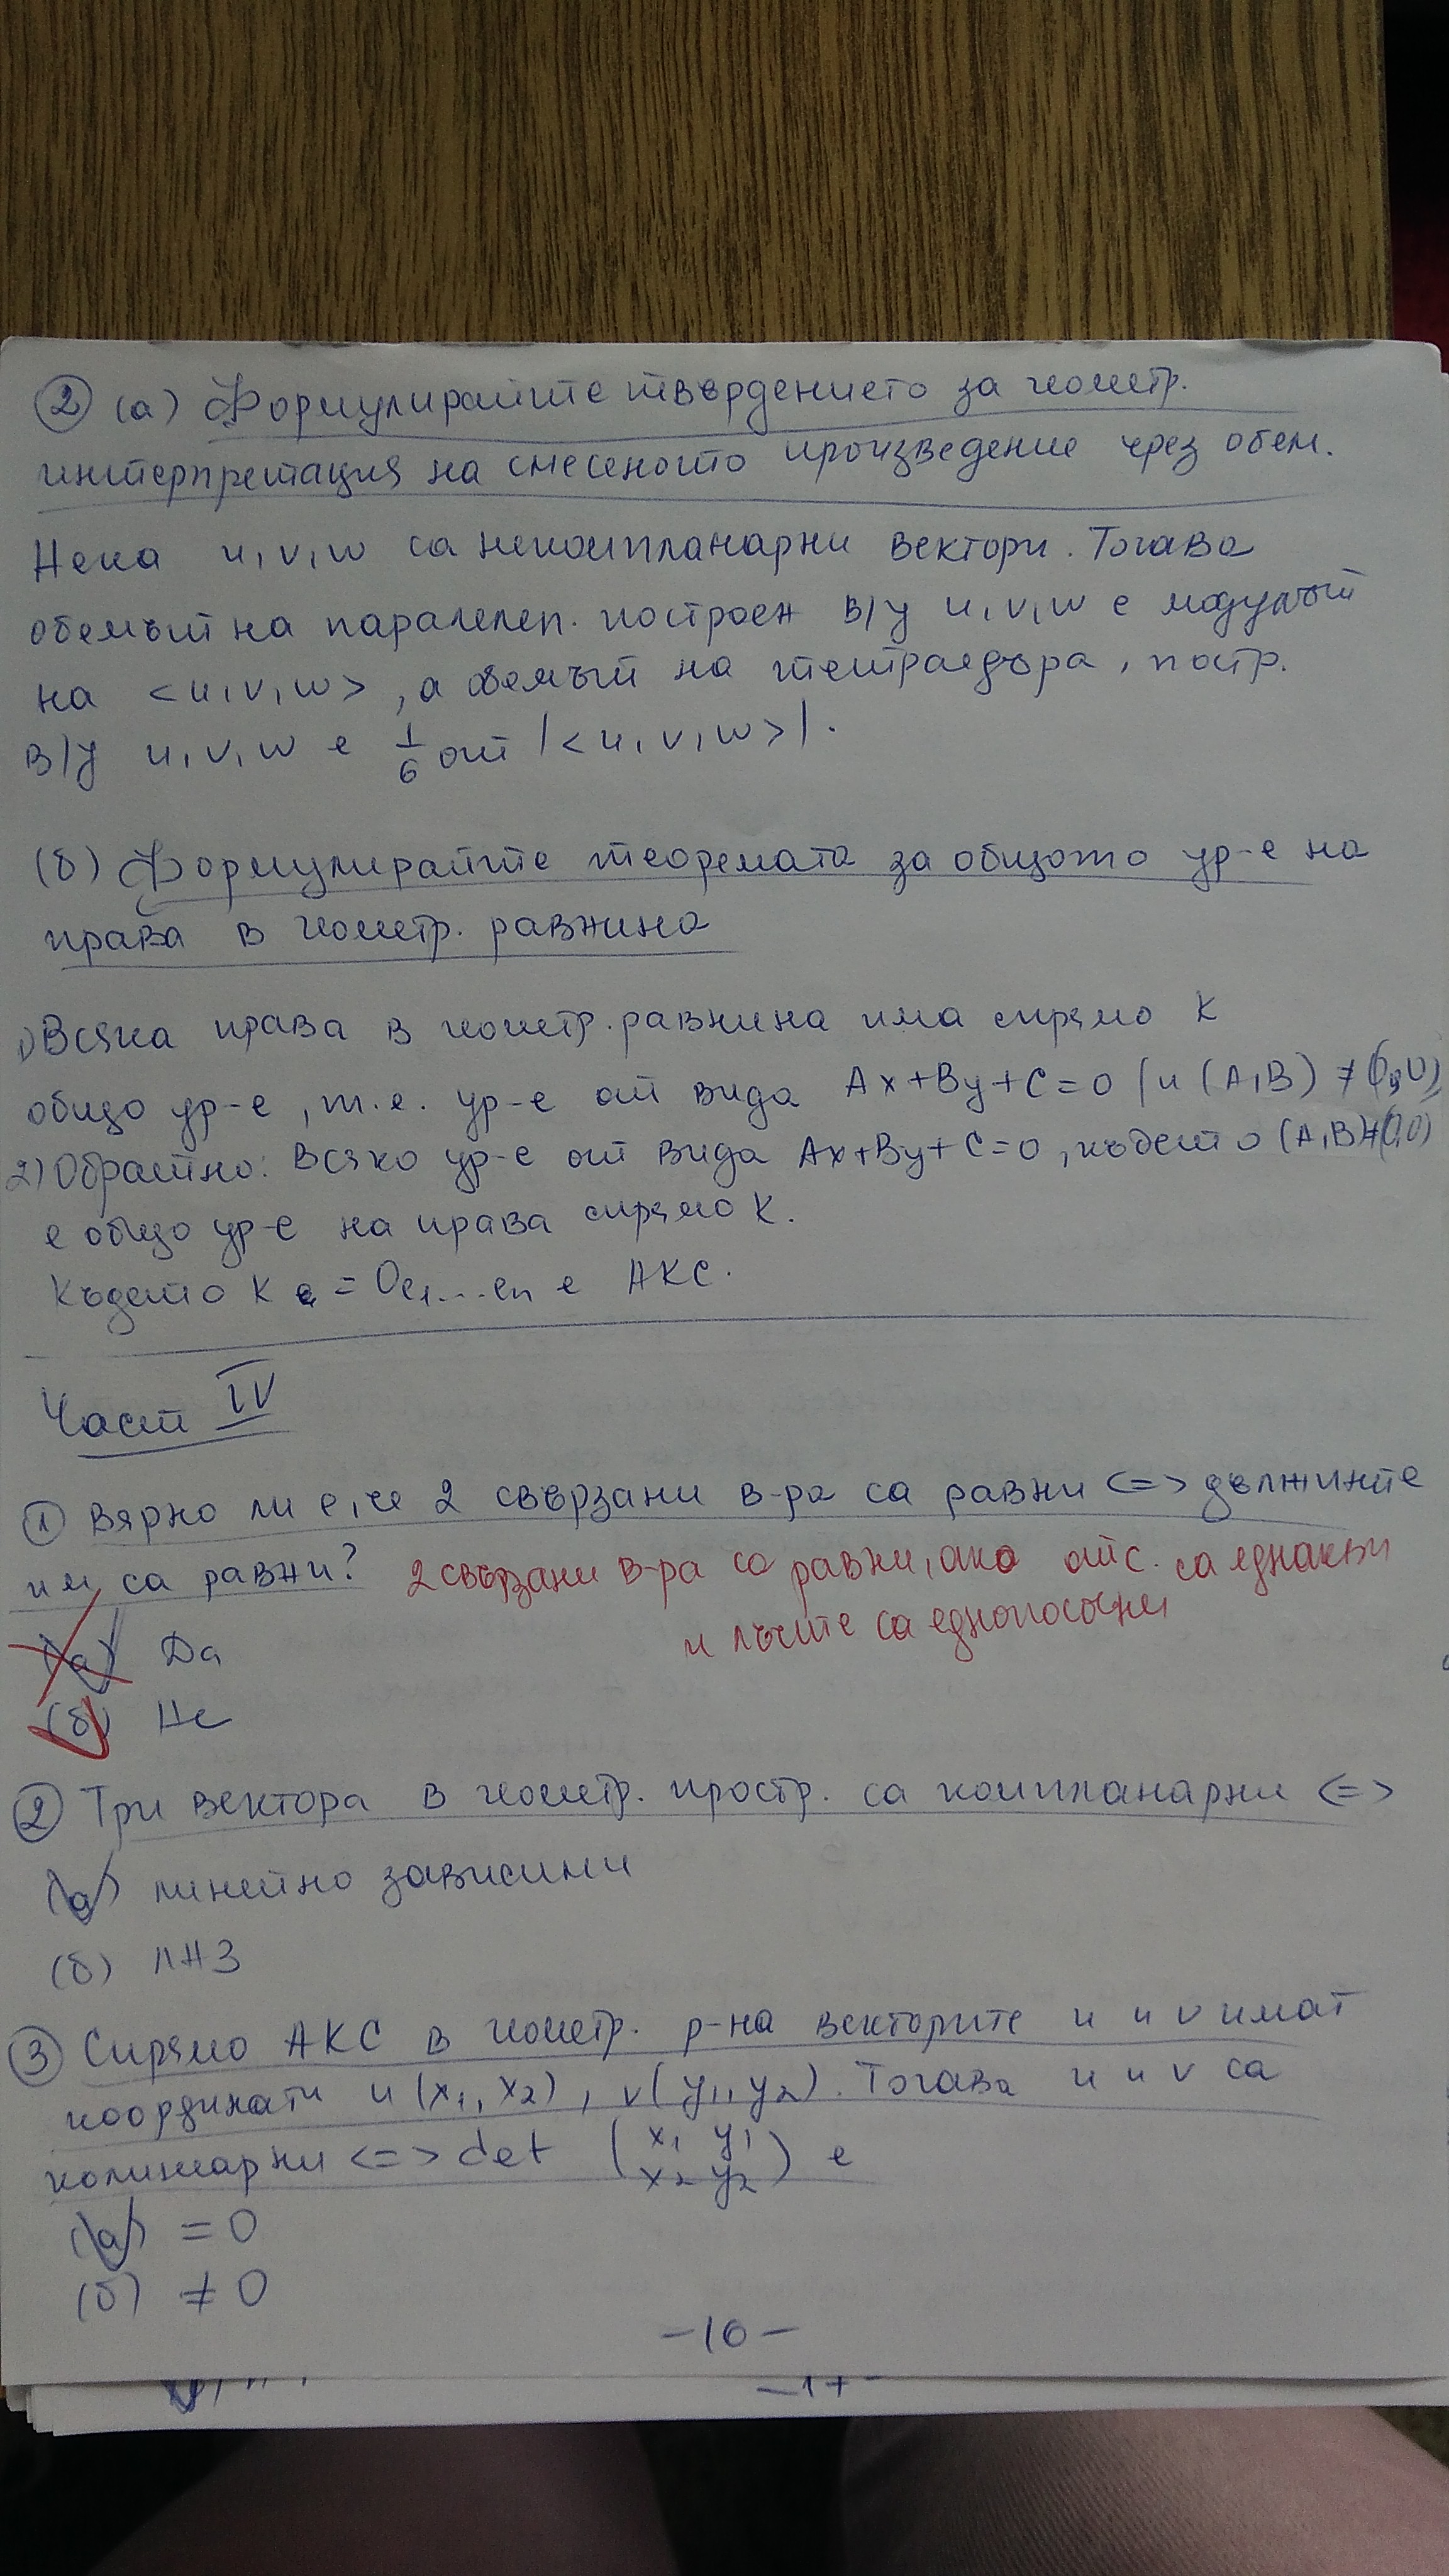 ② (а) Формулирайте твърдението за геометр.
интерпретация на смесеното произведение чрез обем.
Нека u, v, w са некомпланарни вектори. Тогава
обемът на паралелеп. построен в/у u, v, w е модулът
на <u, v, w>, а обемът на тетраедъра, постр.
в/у u, v, w е 1/6 от |<u, v, w>|.
(б) Формулирайте теоремата за общото ур-е на
права в геометр. равнина
1) Всяка права в геометр. равнина има спрямо K
общо ур-е, т.е. ур-е от вида Ax+By+C=0 (и (A,B) ≠ (0,0)
2) Обратно: Всяко ур-е от вида Ax+By+C=0, където (A,B)≠(0,0)
е общо ур-е на права спрямо K.
Където K = Oe₁...eₙ е АКС.
Част IV
① Вярно ли е, че 2 свързани в-ра са равни <=> дължините
им са равни? 2 свързани в-ра са равни, ако отс. са еднакви
и лъчите са еднопосочни
(а) Да
(б) Не
② Три вектора в геометр. простр. са компланарни <=>
(а) линейно зависими
(б) ЛНЗ
③ Спрямо АКС в геометр. р-на векторите u и v имат
координати u(x₁, x₂), v(y₁, y₂). Тогава u и v са
колинеарни <=> det (x₁ y₁
x₂ y₂) е
(а) = 0
(б) ≠ 0
-16-
-17-